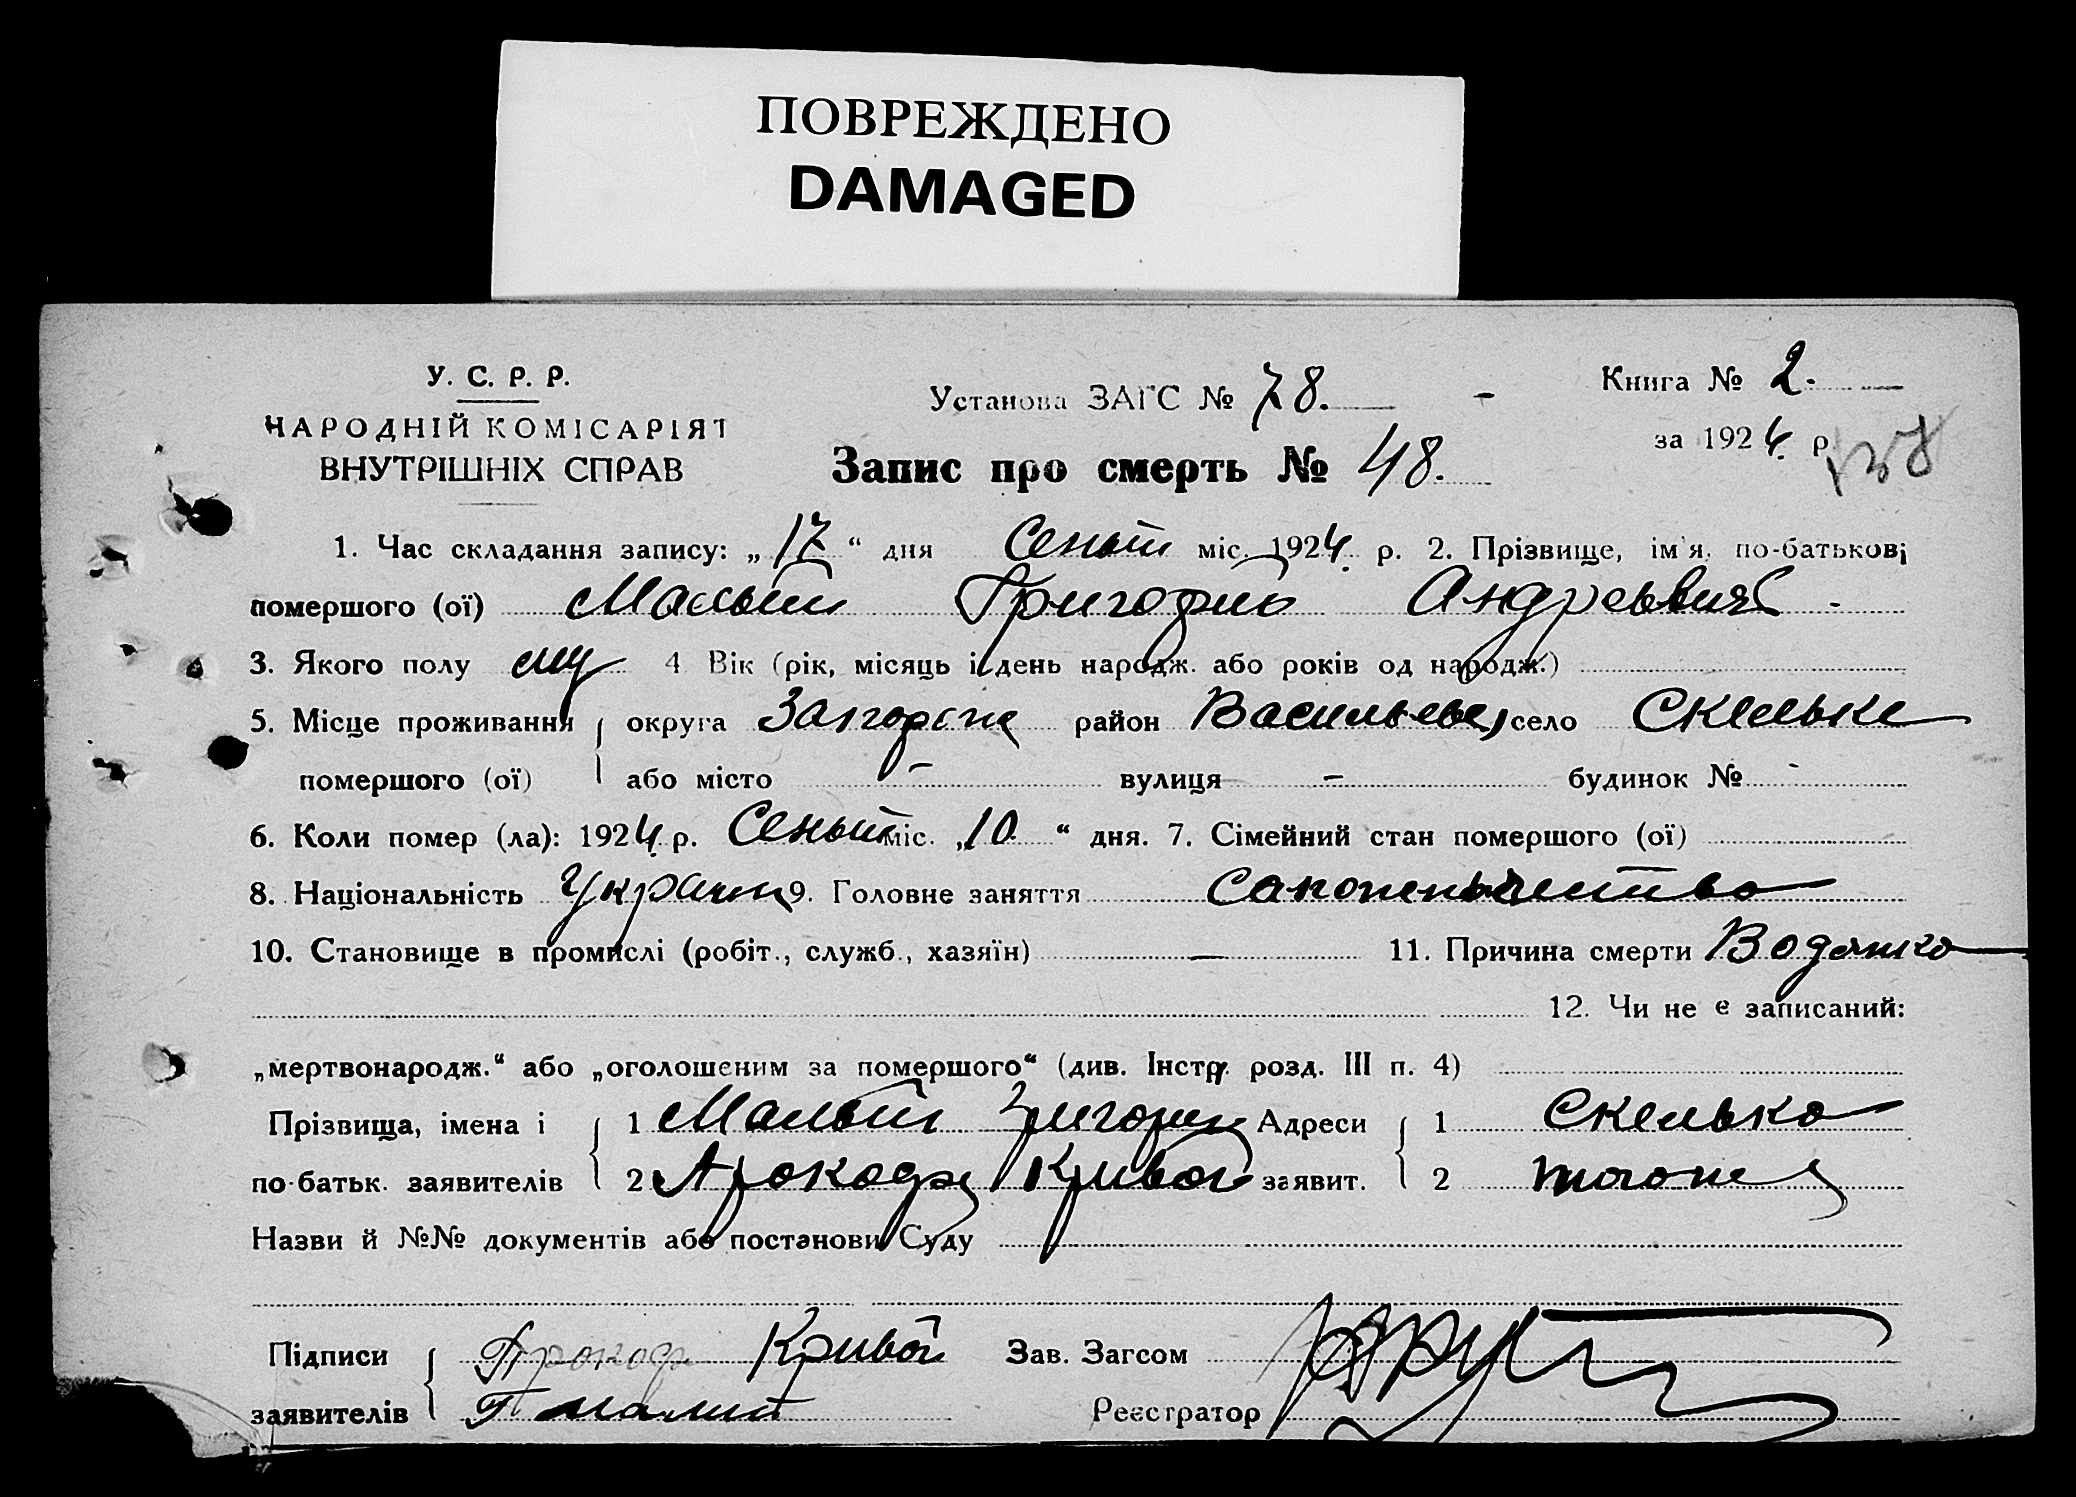 ПОВРЕЖДЕНО
DAMAGED
У. С. Р. Р.
НАРОДНІЙ КОМІСАРІЯТ
ВНУТРІШНІХ СПРАВ
Установа ЗАГС № 78.
Книга № 2.
за 1924 р.
Запис про смерть № 48.
1. Час складання запису: „17“ дня Сеньт міс. 1924 р. 2. Прізвище, ім'я, по-батькові
помершого (ої) Малый Григорий Андреевич
3. Якого полу муж 4 Вік (рік, місяць і день народж. або років од народж.)
5. Місце проживання округа район Васильевс село Скельке
помершого (ої) або місто — вулиця — будинок № -
6. Коли помер (ла): 1924 р. Сеньт міс. „10“ дня. 7. Сімейний стан помершого (ої)
8. Національність Украин 9. Головне заняття
10. Становище в промислі (робіт., служб., хазяїн) — 11. Причина смерти Водянка
12. Чи не є записаний:
„мертвонародж.“ або „оголошеним за помершого“ (див. Інстр. розд. III п. 4)
Прізвища, імена і 1 Малый Григорий Адреси 1 Скелька
по-батьк. заявителів 2 Прокофий Кривой заявит. 2
Назви й №№ документів або постанови Суду
Підписи Прокоф Кривой Зав. Загсом
заявителів Г Малий Реєстратор